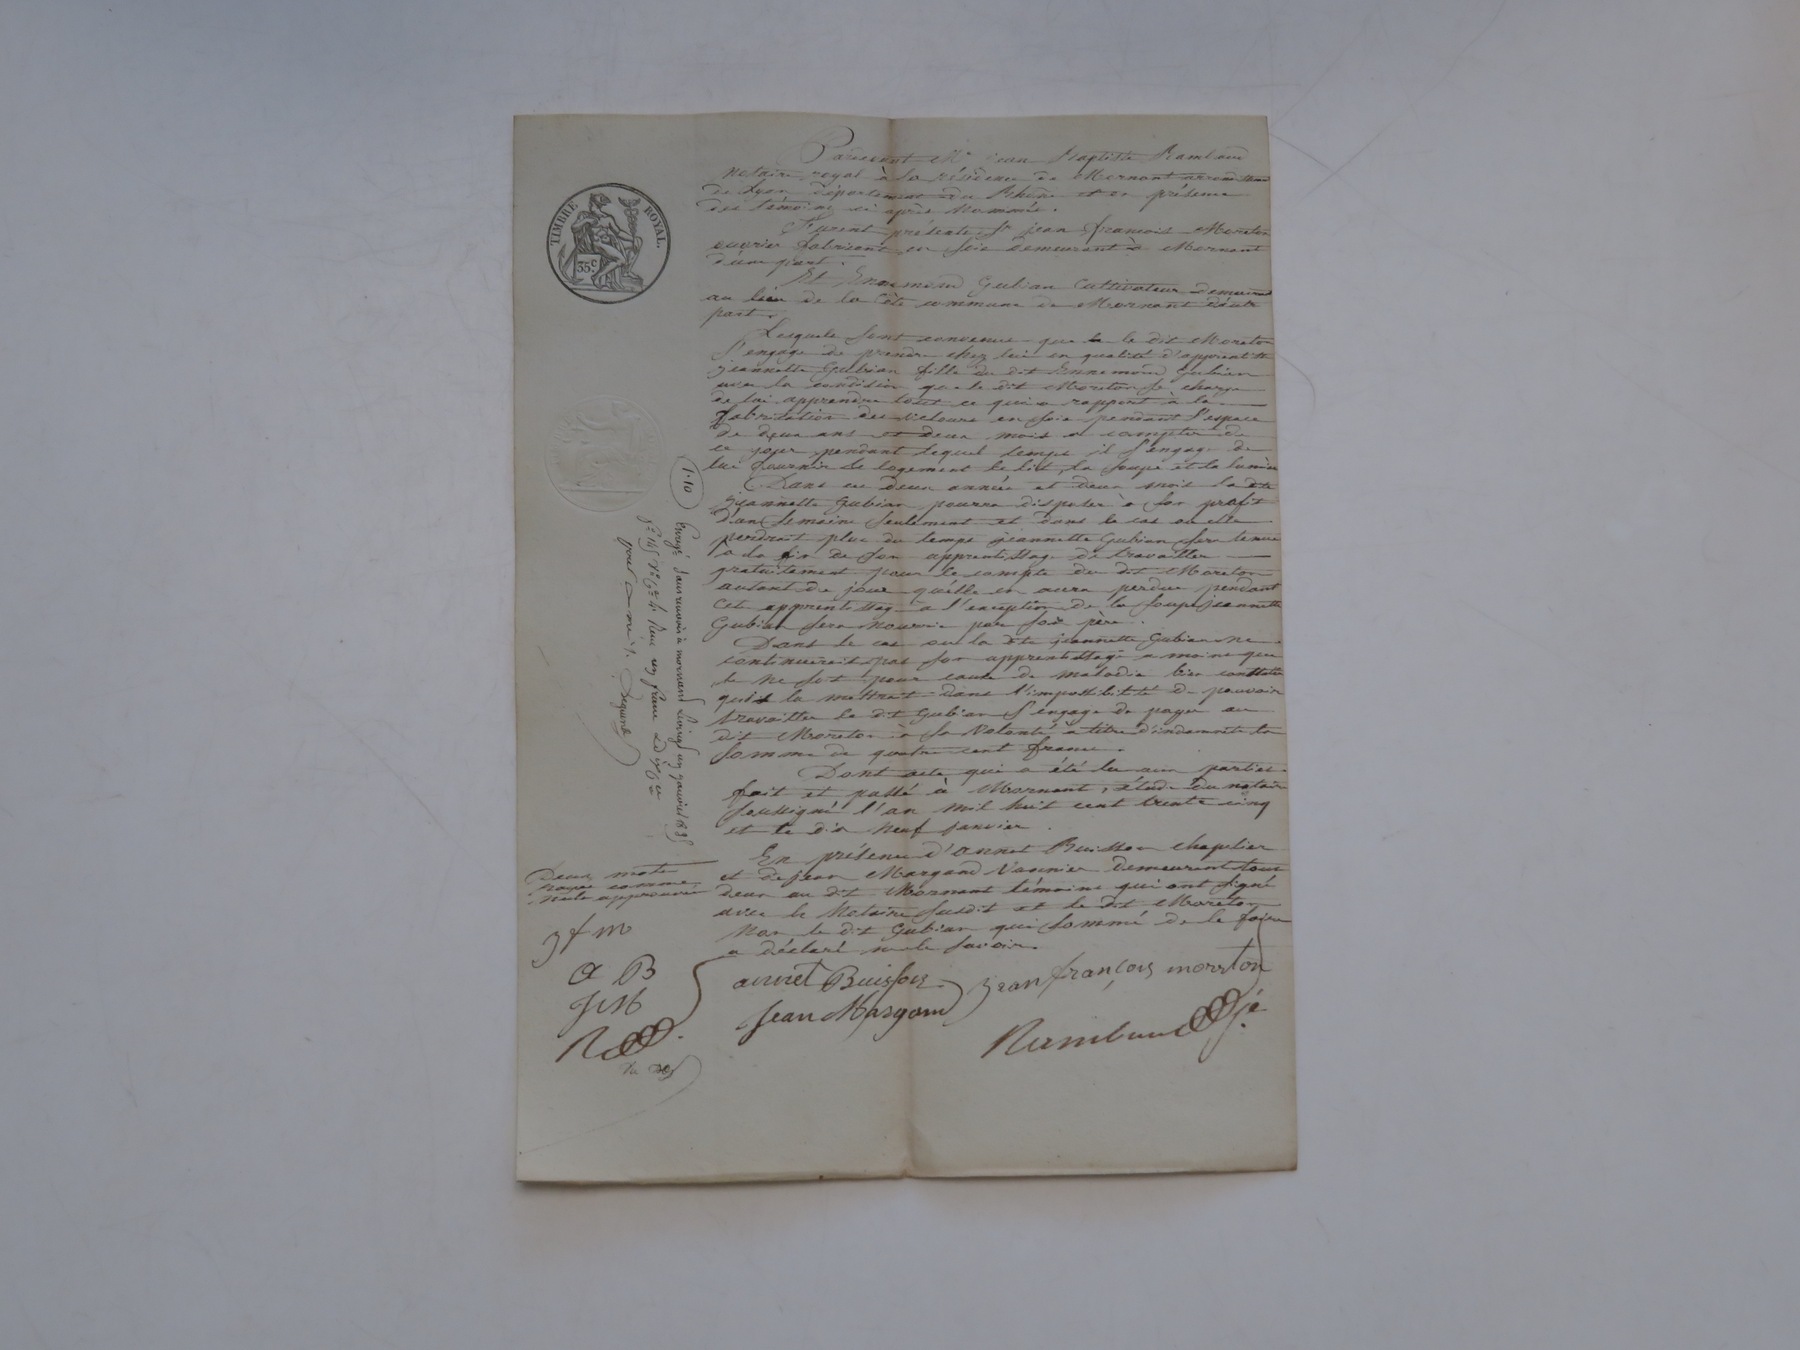 TIMBRE ROYAL.
35 c
Pardevant Me Jean Baptiste Rambaud
notaire royal à la résidence de Mornant arrondissem
de Lyon département du Rhône et en présence
des témoins ci après nommés.
Furent présents Sr jean françois Moreton
ouvrier fabricant en soie demeurant à Mornant
d'une part.
Et Ennemond Gubian Cultivateur demeurant
au lieu de la Côte commune de Mornant d'autre
part.
Lesquels sont convenus que le dit Moreton
s'engage de prendre chez lui en qualité d'apprentie
jeannette Gubian fille du dit Ennemond Gubian
avec la condition que le dit Moreton se charge
de lui apprendre tout ce qui a rapport à la
fabrication des velours en soie pendant l'espace
de deux ans et deux mois a compter de
ce jour, pendant lequel temps il s'engage de
lui fournir le logement le lit, la soupe et la lumière
Dans ces deux années et deux mois la dte
jeannette Gubian pourra disposer à son profit
d'un semaine seulement et dans le cas ou elle
perdrait plus du temps jeannette Gubian sera tenue
a la fin de son apprentissage de travailler
gratuitement pour le compte du dit Moreton
autant de jour qu'elle en aura perdue pendant
cet apprentissage a l'exception de la soupe jeannette
Gubian sera nourrie par son père.
Dans le cas ou la dte jeannette Gubian ne
continuerait pas son apprentissage a moins que
ce ne soit pour cause de maladie bien constatée
qui la mettrait dans l'impossibilité de pouvoir
travailler le dit Gubian s'engage de payer au
dit Moreton à sa volonté à titre d'indemnité la
somme de quatre cent francs.
Dont acte qui a été lu aux parties
fait et passé à Mornant, étude du notaire
soussigné l'an mil huit cent trente cinq
et le dix neuf janvier.
En présence d'annet Buisson chapelier
et de jean Margand Vannier demeurant tous
deux au dit Mornant témoins qui ont signé
avec le Notaire susdit et le dit Moreton
non le dit Gubian qui sommé de le faire
a déclaré ne le savoir.
annet Buisson jean françois moreton
jean Margand
Rambaud
1.10
Enregé à mornant janvier 1835
reçu un franc dix ce
Deux mots
rayés comme
nuls approuvés
jfm
a B
JM
R